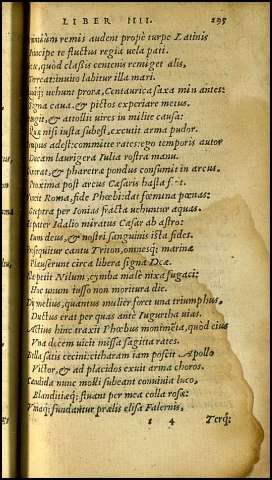 LIBER IIII. 295
remis audent propè turpe Latinis
Principe te fluctus regia uela pati.
quòd claßis centenis remiget alis,
Terreat: inuito labitur illa mari.
uehunt proræ, Centaurica saxa minantes:
Tigna caua, & pictos experiere metus.
& attollit uires in milite causa:
Quæ nisi iusta subest, excutit arma pudor.
adest: committe rates: ego temporis autor
Ducam laurigera Iulia rostra manu.
& pharetræ pondus consumit in arcus.
Proxima post arcus Cæsaris hasta
Roma, fide Phœbi: dat fœmina pœnas:
Sceptra per Ionias fracta uehuntur aquas.
pater Idalio miratus Cæsar ab astro:
deus, & nostri sanguinis ista fides.
Prosequitur cantu Triton, omnesq; marinæ
Plauserunt circa libera signa Deæ.
Illa petit Nilum, cymba malè nixa fugaci:
Hoc unum iusso non moritura die.
Dij melius, quantus mulier foret una triumphus,
Ductus erat per quas antè Iugurtha uias.
Actius hinc traxit Phœbus monimēta, quòd eius
Vna decem uicit missa sagitta rates.
Bella satis cecini: citharam iam poscit Apollo
Victor, & ad placidos exuit arma choros.
Candida nunc molli subeant conuiuia luco,
Blanditiæq; fluant per mea colla rosæ:
Vinaq; fundantur prælis elisa Falernis,
s 4 Terq;